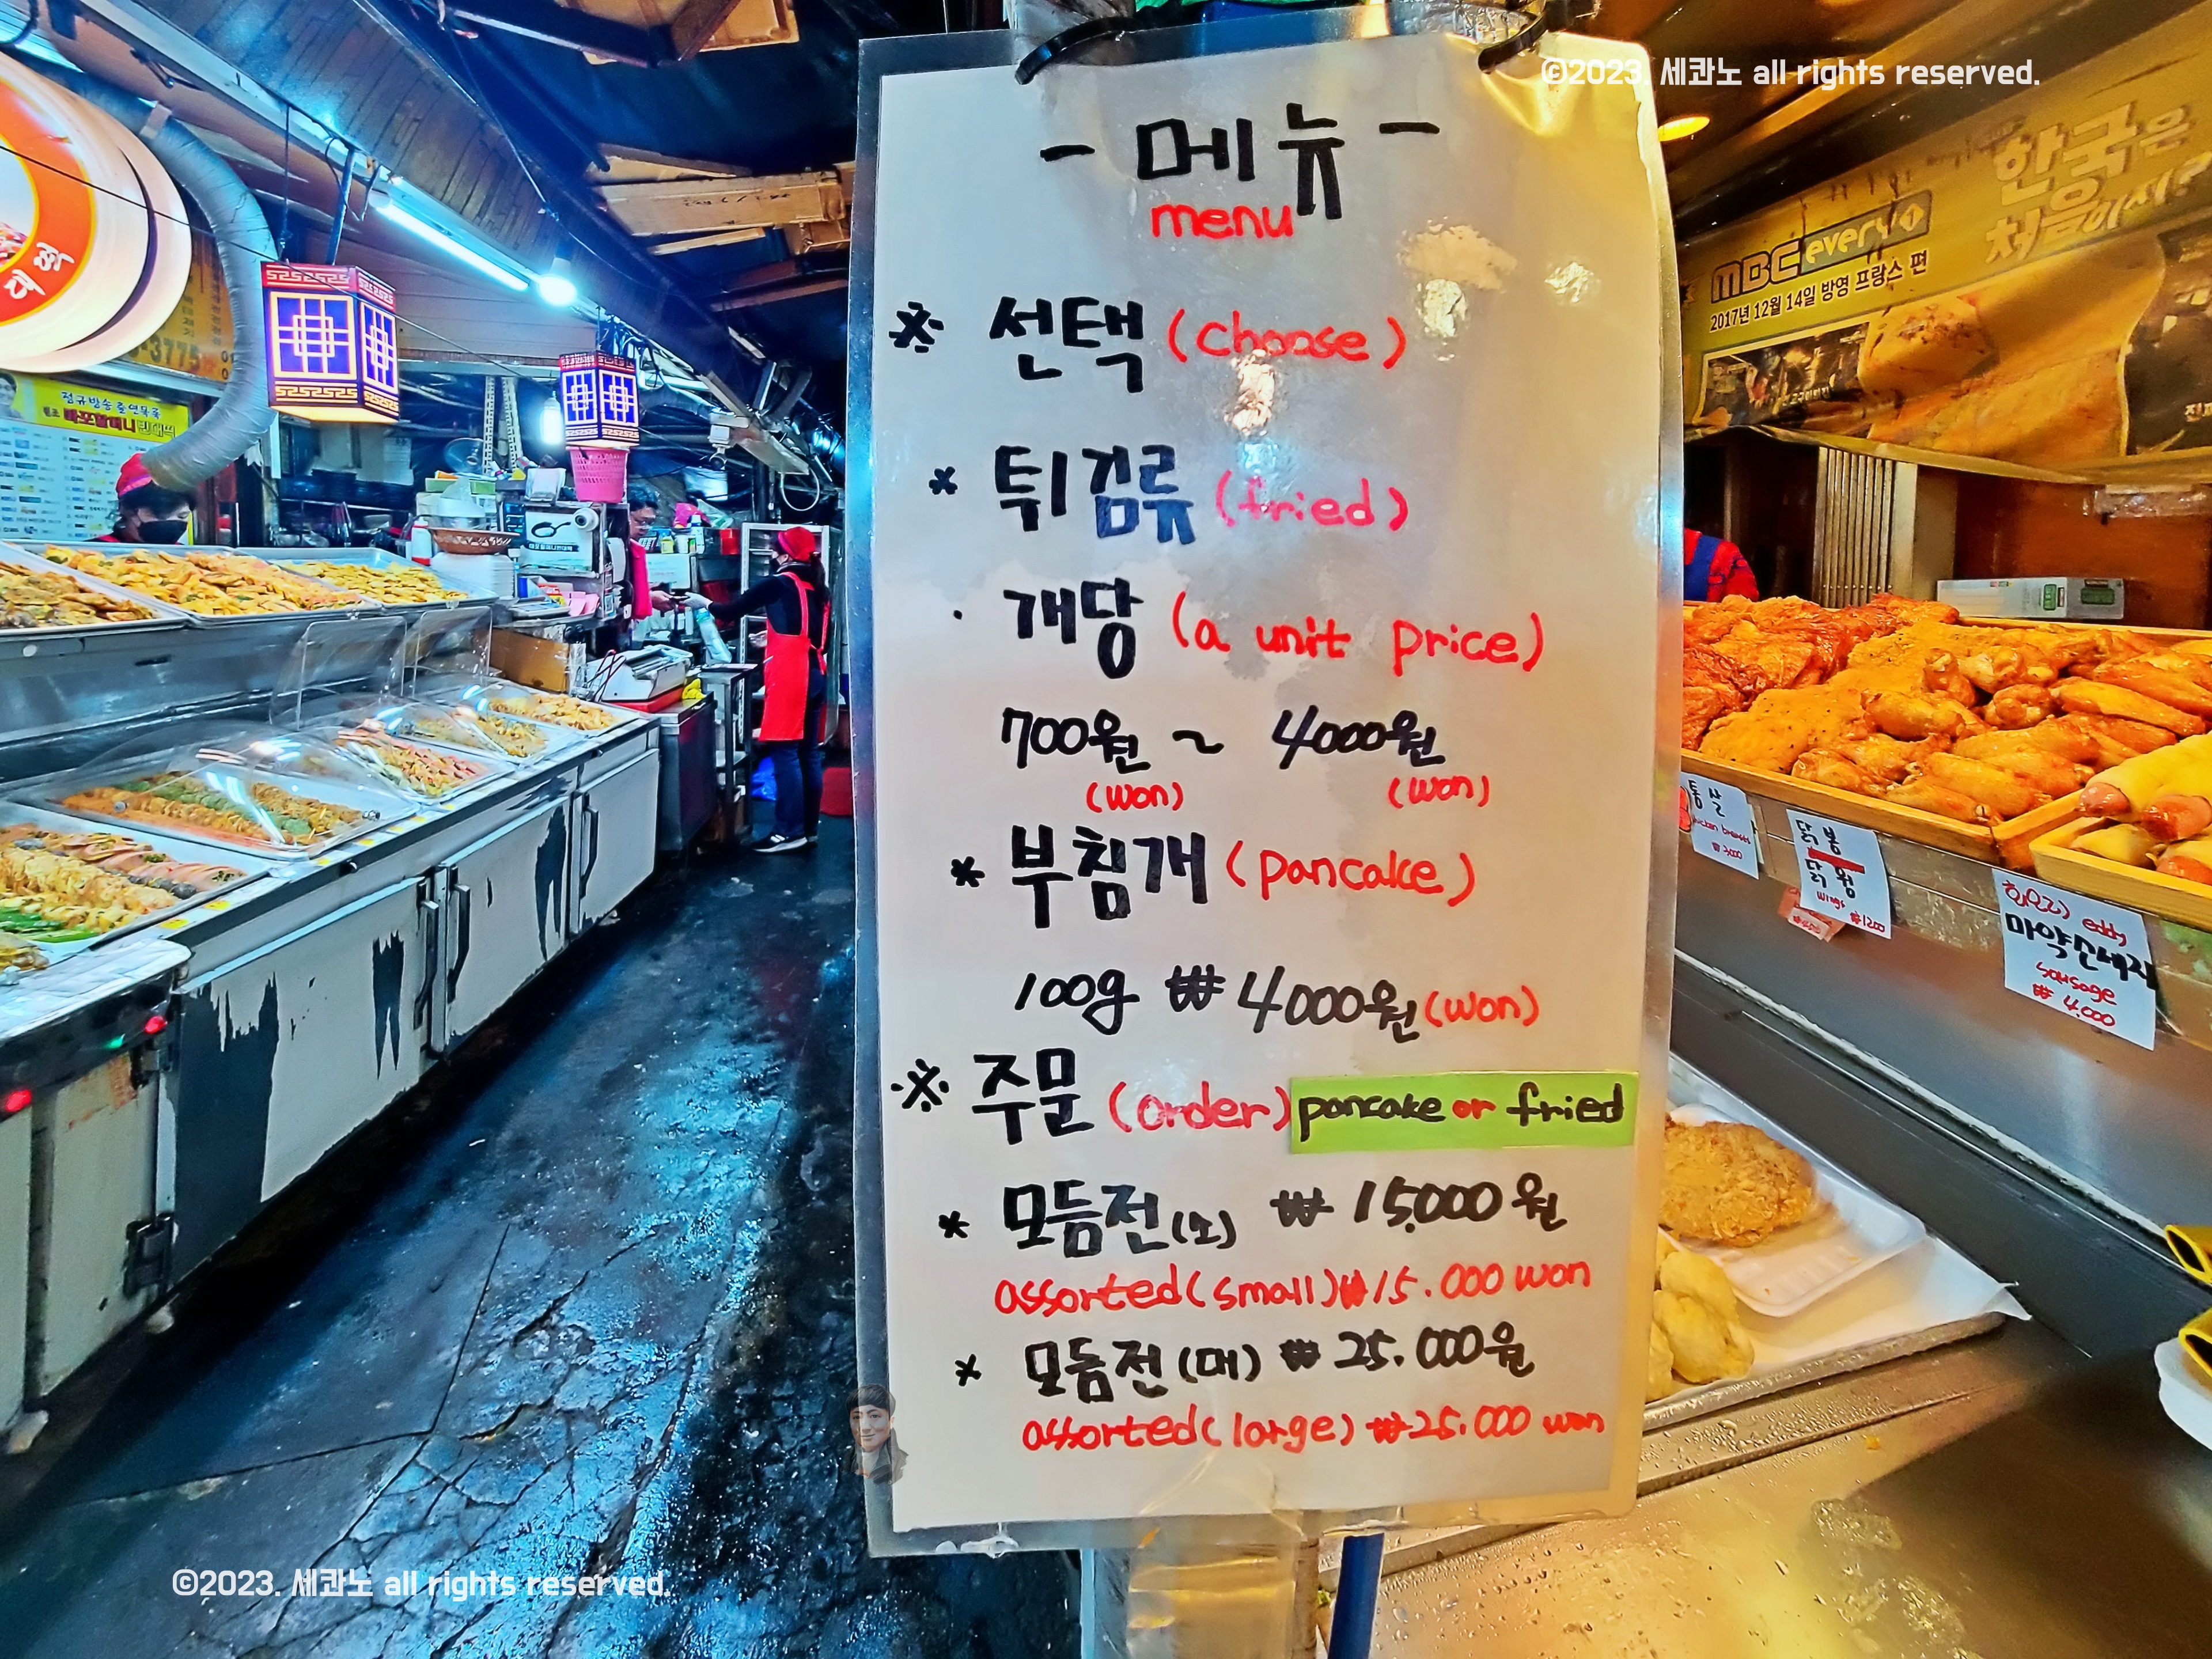 ©2023. 세콴노 all rights reserved.
- 메뉴 -
menu
※ 선택 (choose)
* 튀김류 (fried)
· 개당 (a unit price)
700원 ~ 4000원
(won) (won)
* 부침개 (pancake)
100g ₩4000원 (won)
※ 주문 (order) pancake or fried
* 모듬전(소) ₩ 15,000원
assorted(small)₩15.000 won
* 모듬전(대) ₩ 25.000원
assorted(large) ₩25.000 won
한국은
처음이지?
MBC every1
2017년 12월 14일 방영 프랑스 편
통살
₩3000
닭봉
닭윙
wings ₩1200
마약소세지
sausage
₩4,000
정규방송출연목록
원조 마포할머니빈대떡
-3775
©2023. 세콴노 all rights reserved.